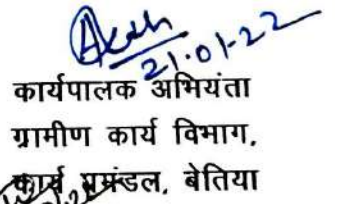 21.01.22
कार्यपालक अभियंता
ग्रामीण कार्य विभाग,
कार्य प्रमंडल, बेतिया